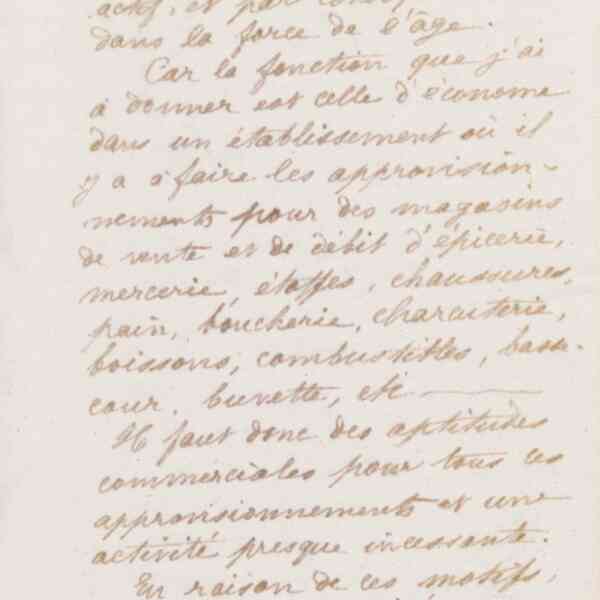 actif, et par
dans la force de l'âge.
Car la fonction que j'ai
à donner est celle d'économe
dans un établissement où il
y a à faire les approvision-
nements pour des magasins
de vente et de débit d'épicerie,
mercerie, étoffes, chaussures,
pain, boucherie, charcuterie,
boissons, combustibles, basse-
cour, buvette, etc
Il faut donc des aptitudes
commerciales pour tous ces
approvisionnements et une
activité presque incessante.
En raison de ces motifs,